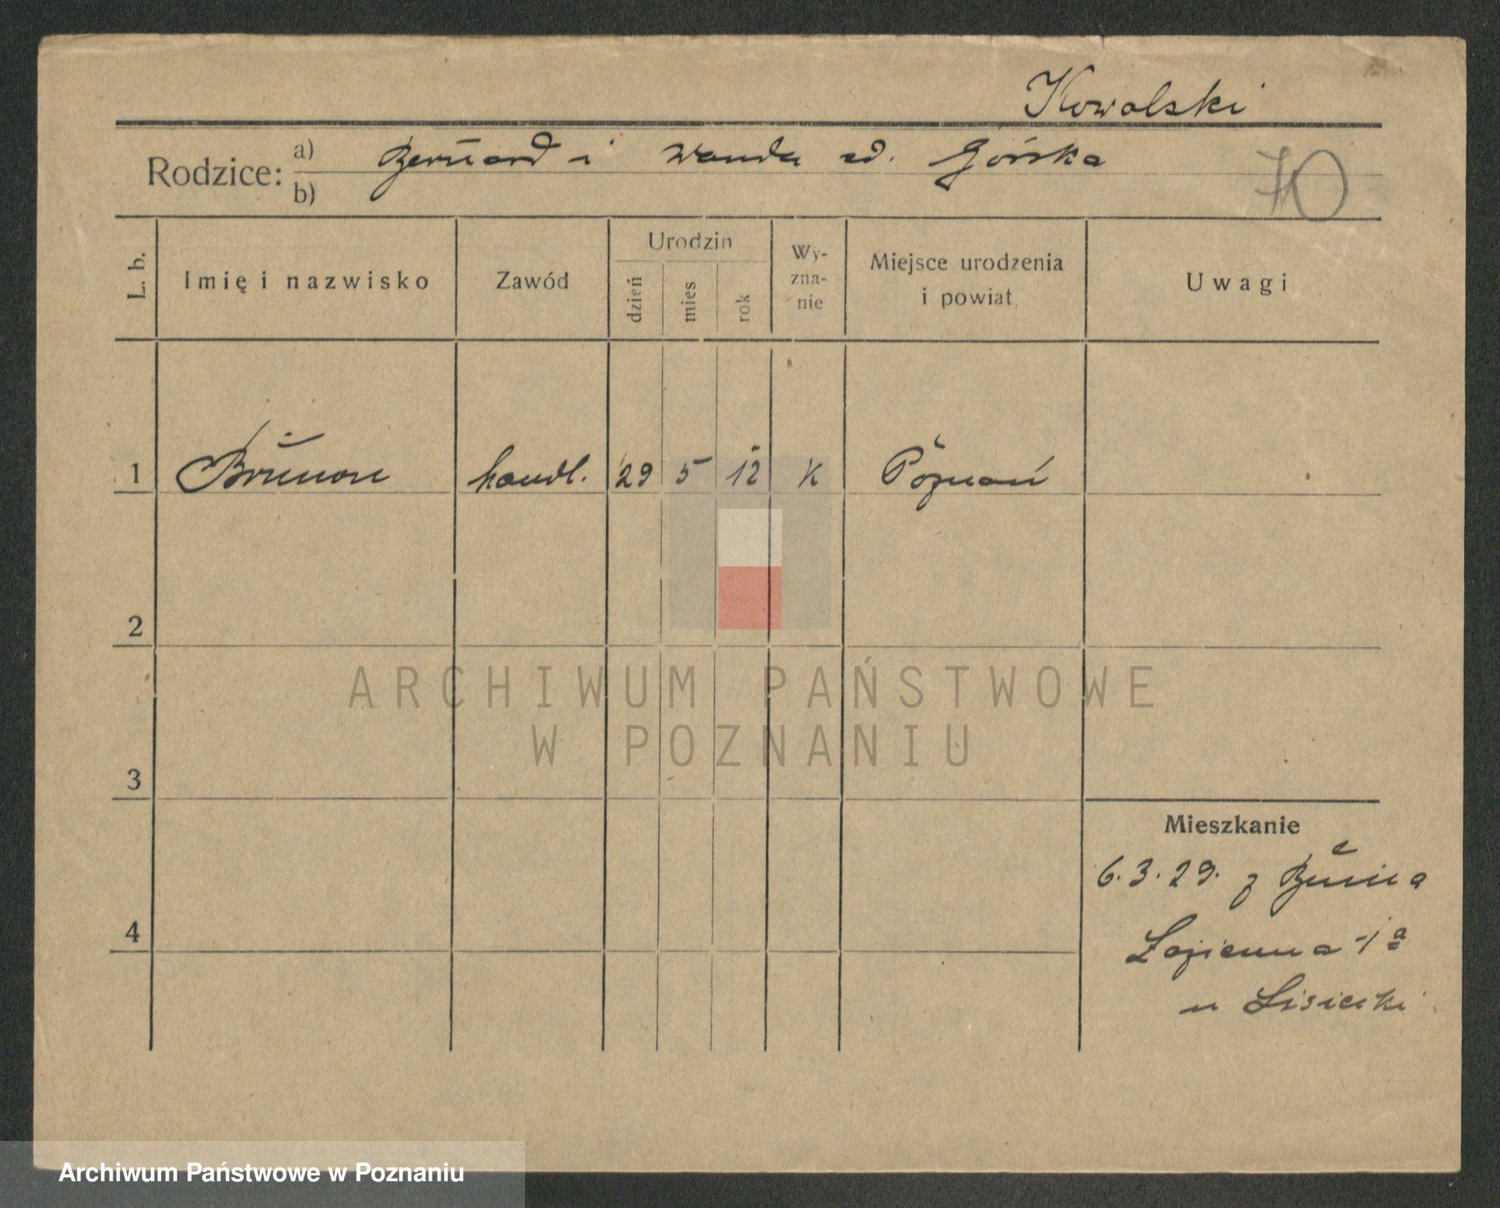 Kowalski
Rodzice: a) Bernard i Wanda zd. Górska
b)
70
L. b.
Imię i nazwisko
Zawód
Urodzin
dzień
mies
rok
Wy-
zna-
nie
Miejsce urodzenia
i powiat
Uwagi
1 Brunon handl. 29 5 12 K Poznań
2
3
4
Mieszkanie
6.3.29. z
Łazienna 1a
u Lisiecki
ARCHIWUM PAŃSTWOWE
W POZNANIU
Archiwum Państwowe w Poznaniu